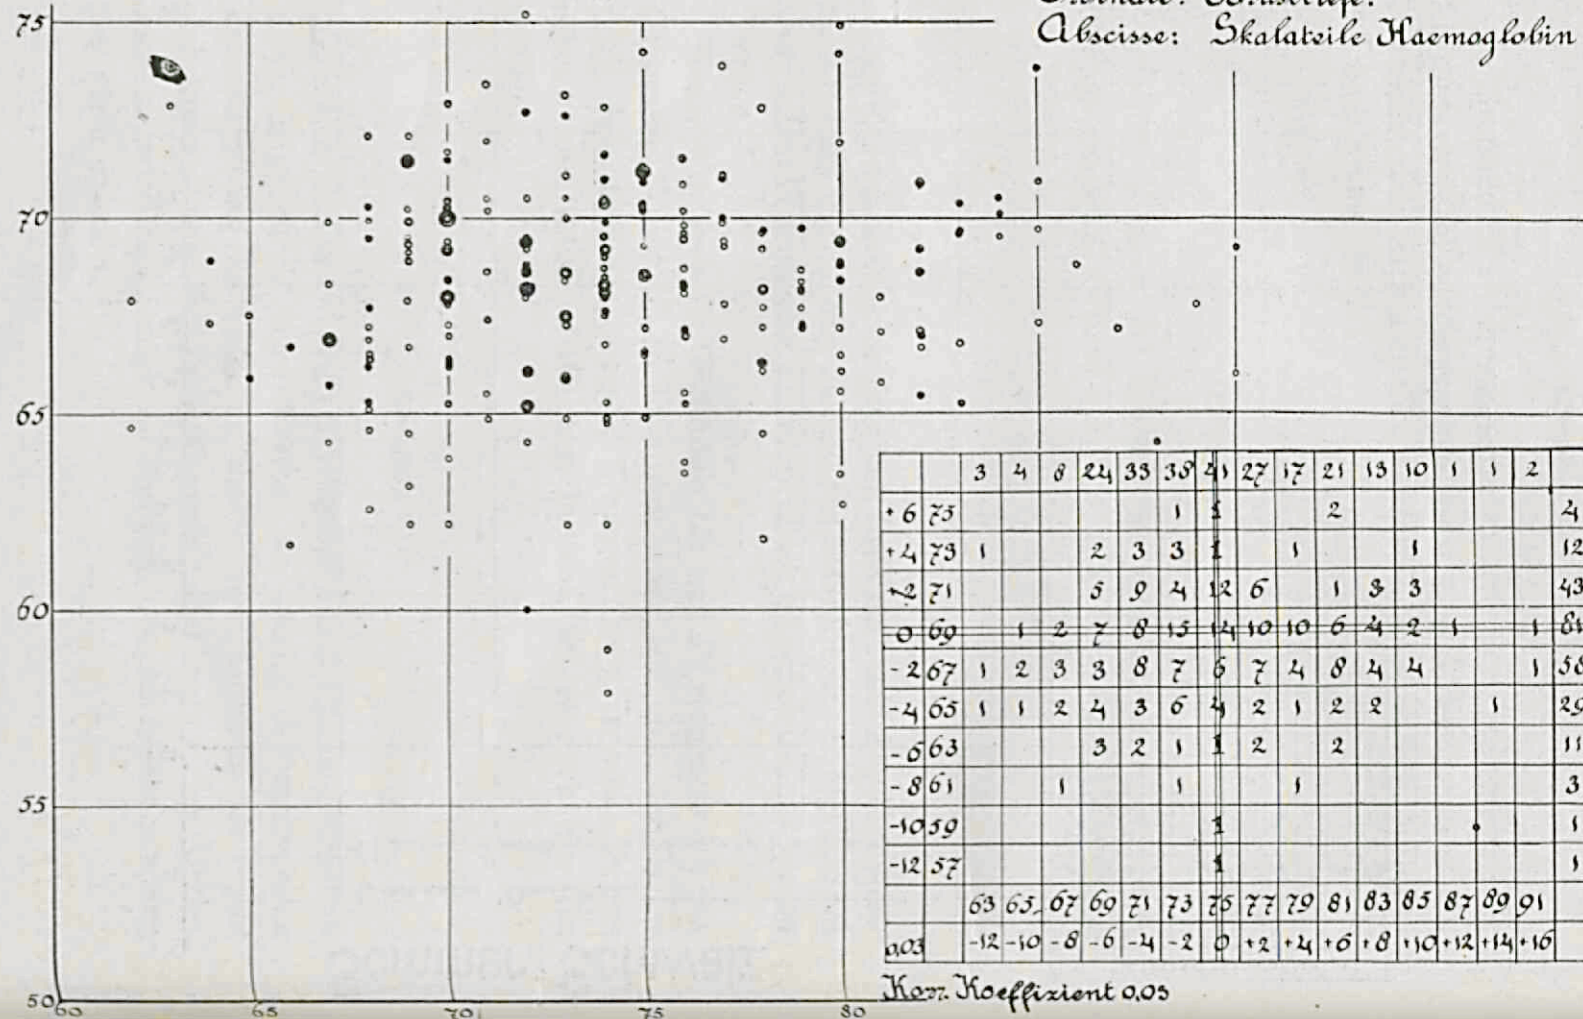 Abscisse: Skalateile Haemoglobin
75
70
65
60
55
50
60 65 70 75 80
3 4 8 24 33 38 41 27 17 21 13 10 1 1 2
+6 75 1 1 2 4
+4 73 1 2 3 3 1 1 1 12
+2 71 5 9 4 12 6 1 3 3 43
0 69 1 2 7 8 15 14 10 10 6 4 2 1 1 81
-2 67 1 2 3 3 8 7 6 7 4 8 4 4 1 58
-4 65 1 1 2 4 3 6 4 2 1 2 2 1 29
-6 63 3 2 1 1 2 2 11
-8 61 1 1 1 3
-10 59 1 1
-12 57 1 1
63 65 67 69 71 73 75 77 79 81 83 85 87 89 91
0,03 -12 -10 -8 -6 -4 -2 0 +2 +4 +6 +8 +10 +12 +14 +16
Korr. Koeffizient 0,03